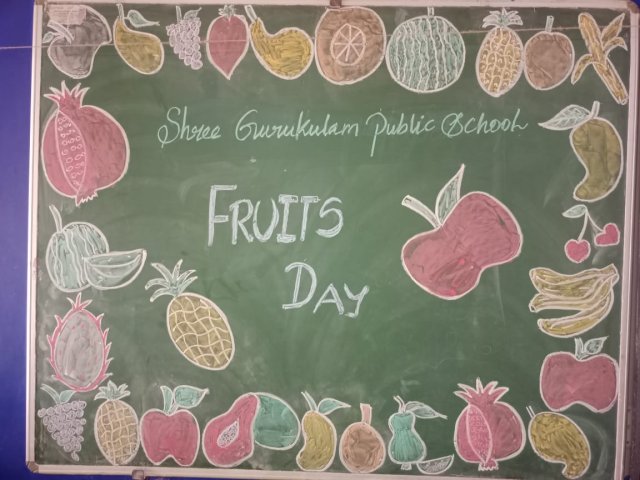 Shree Gurukulam Public School
FRUITS
DAY